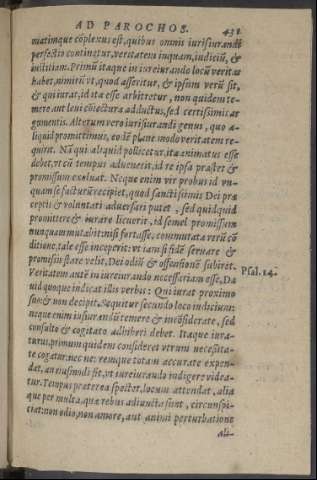 AD PAROCHOS. 431
matimque cōplexus est, quibus omnis iurisiurandi
perfectio continetur, veritatem inquam, iudiciū, &
iustitiam. Primū itaque in iureiurando locū veritas
habet, nimirū vt, quod asseritur, & ipsum verū sit,
& qui iurat, id ita esse arbitretur, non quidem te-
mere aut leui cōiectura adductus, sed certissimis ar
gumentis. Alterum vero iurisiurandi genus, quo a-
liquid promittimus, eodē plane modo veritatem re-
quirit. Nā qui aliquid pollicetur, ita animatus esse
debet, vt cū tempus aduenerit, id re ipsa præstet &
promissum exoluat. Neque enim vir probus id vn-
quam se facturū recipiet, quod sanctissimis Dei præ
ceptis & voluntati aduersari putet, sed quidquid
promittere & iurare licuerit, id semel promissum
nunquam mutabit: nisi fortasse, commutata verū cō
ditione, tale esse inceperit: vt iam si fidē seruare &
promissis stare velit, Dei odiū & offensionē subiret.
Veritatem autē in iureiurando necessariam esse, Da
uid quoque indicat illis verbis: Qui iurat proximo
suo & non decipit. Sequitur secundo loco iudicium:
neque enim iusiurandū temere & incōsiderate, sed
consulto & cogitato adhiberi debet. Itaque iura-
turus, primum quidem consideret vtrum necessita-
te cogatur, nec ne: remque totam accurate expen-
dat, an eiusmodi sit, vt iureiurando indigere videa-
tur. Tempus præterea spectet, locum attendat, alia
que per multa quæ rebus adiuncta sunt, circunspi-
ciat: non odio, non amore, aut animi perturbatione
ali-
Psal. 14.